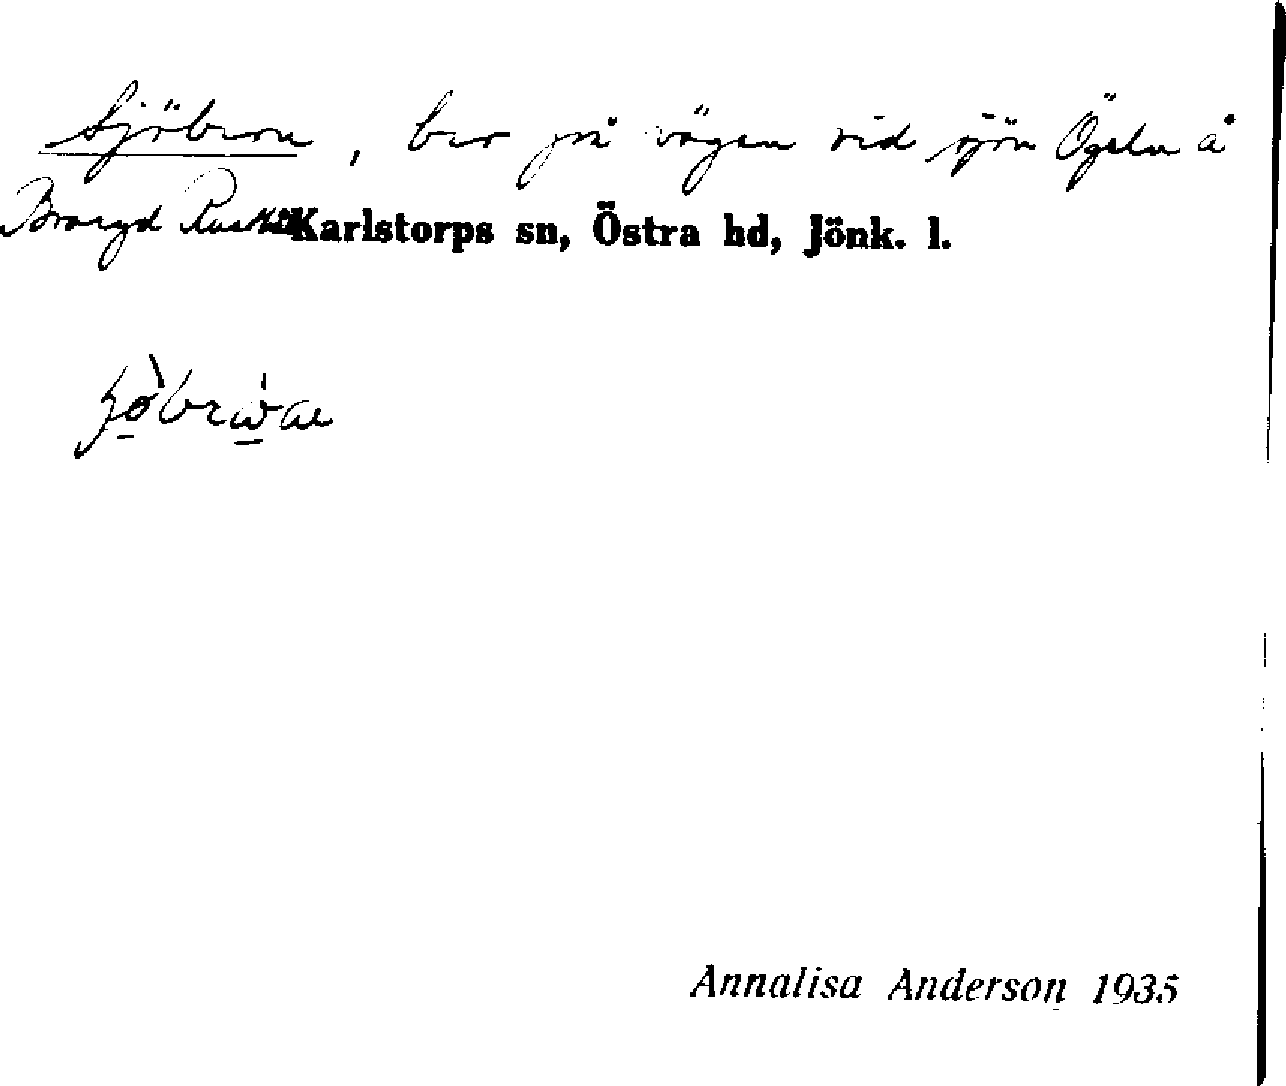 Sjöbron, bro på vägen vid sjön Ögeln å
Karlstorps sn, Östra hd, Jönk. l.
Annalisa Anderson 1935